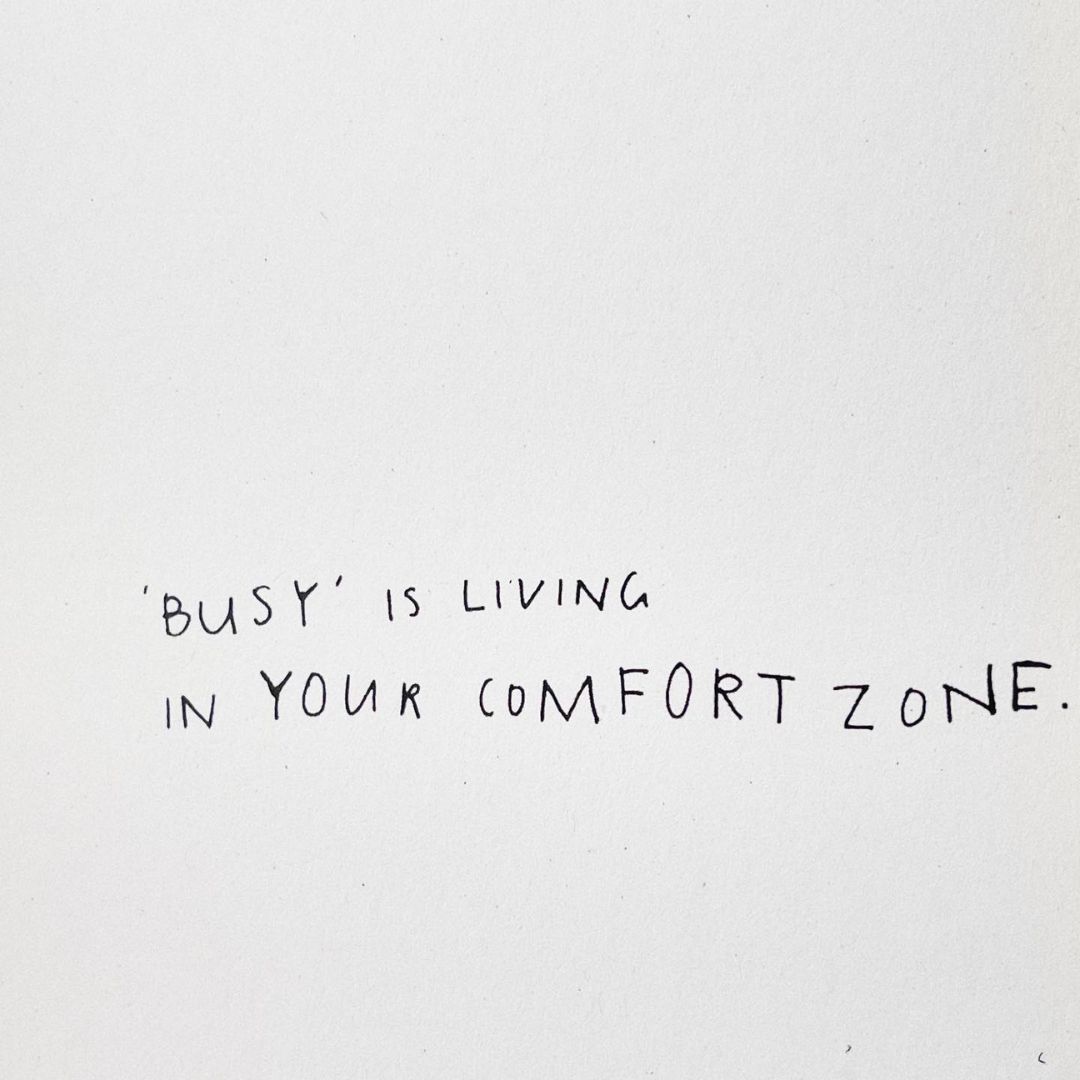 'BUSY' IS LIVING
IN YOUR COMFORT ZONE.